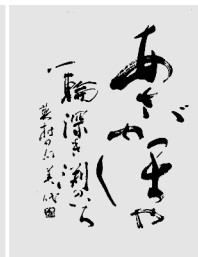 あさがほや
一輪深き渕のいろ
蕪村の句